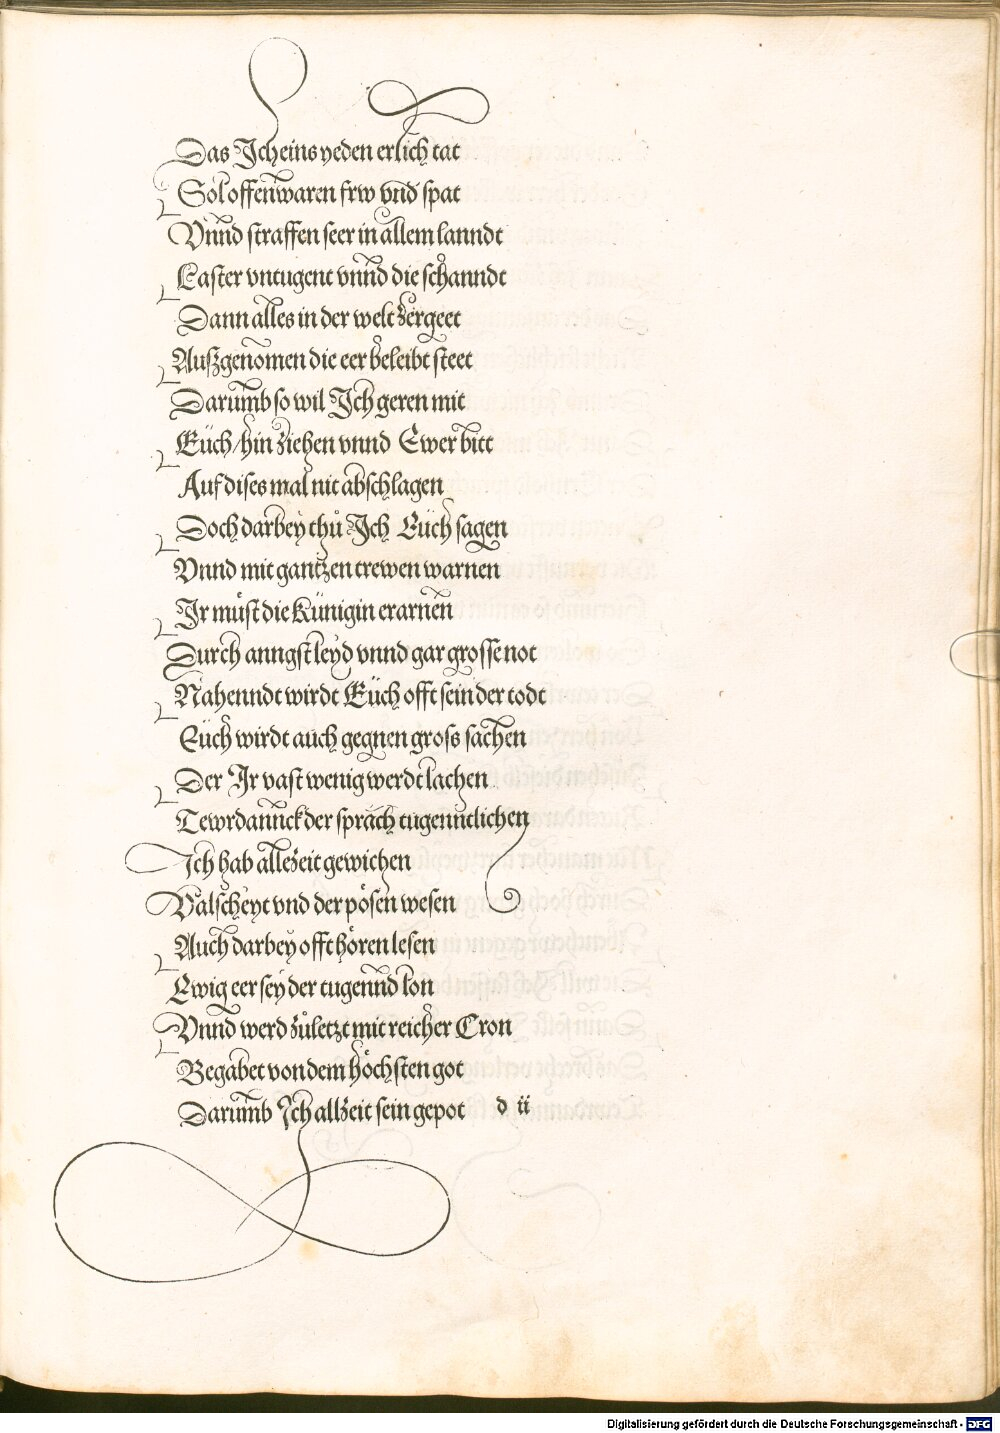 Das Ich eins yeden erlich tat
Sol offenwaren frw vnd spat
Vnnd straffen seer in allem lanndt
Laster vntugent vnnd die schanndt
Dann alles in der welt zergeet
Außgenomen die eer beleibt steet
Darumb so wil Ich geren mit
Eüch hin ziehen vnnd Ewer bitt
Auf dises mal nit abschlagen
Doch darbey thů Ich Eüch sagen
Vnnd mit gantzen trewen warnen
Ir müst die Künigin erarnen
Durch anngst leyd vnnd gar grosse not
Nahenndt wirdt Eüch offt sein der todt
Eüch wirdt auch gegnen gross sachen
Der Ir vast wenig werdt lachen
Tewrdannck der sprach tugenntlichen
Ich hab allezeit gewichen
Valscheyt vnd der pösen wesen
Auch darbey offt hören lesen
Ewig eer sey der tugennd lon
Vnnd werd zůletzt mit reicher Cron
Begabet von dem höchsten got
Darumb Ich allzeit sein gepot d ii
Digitalisierung gefördert durch die Deutsche Forschungsgemeinschaft - DFG